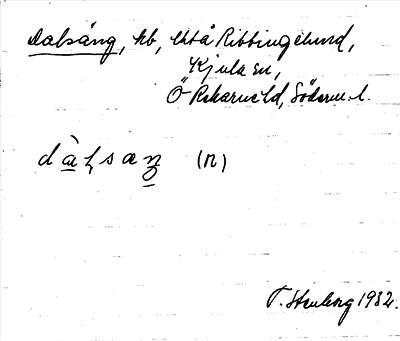 Dalsäng, hb, Ribbingelund,
Kjula sn,
Ö Rekarne hd, Söderm. l.
dàļsaŋ (n)
T. Stenberg 1932.